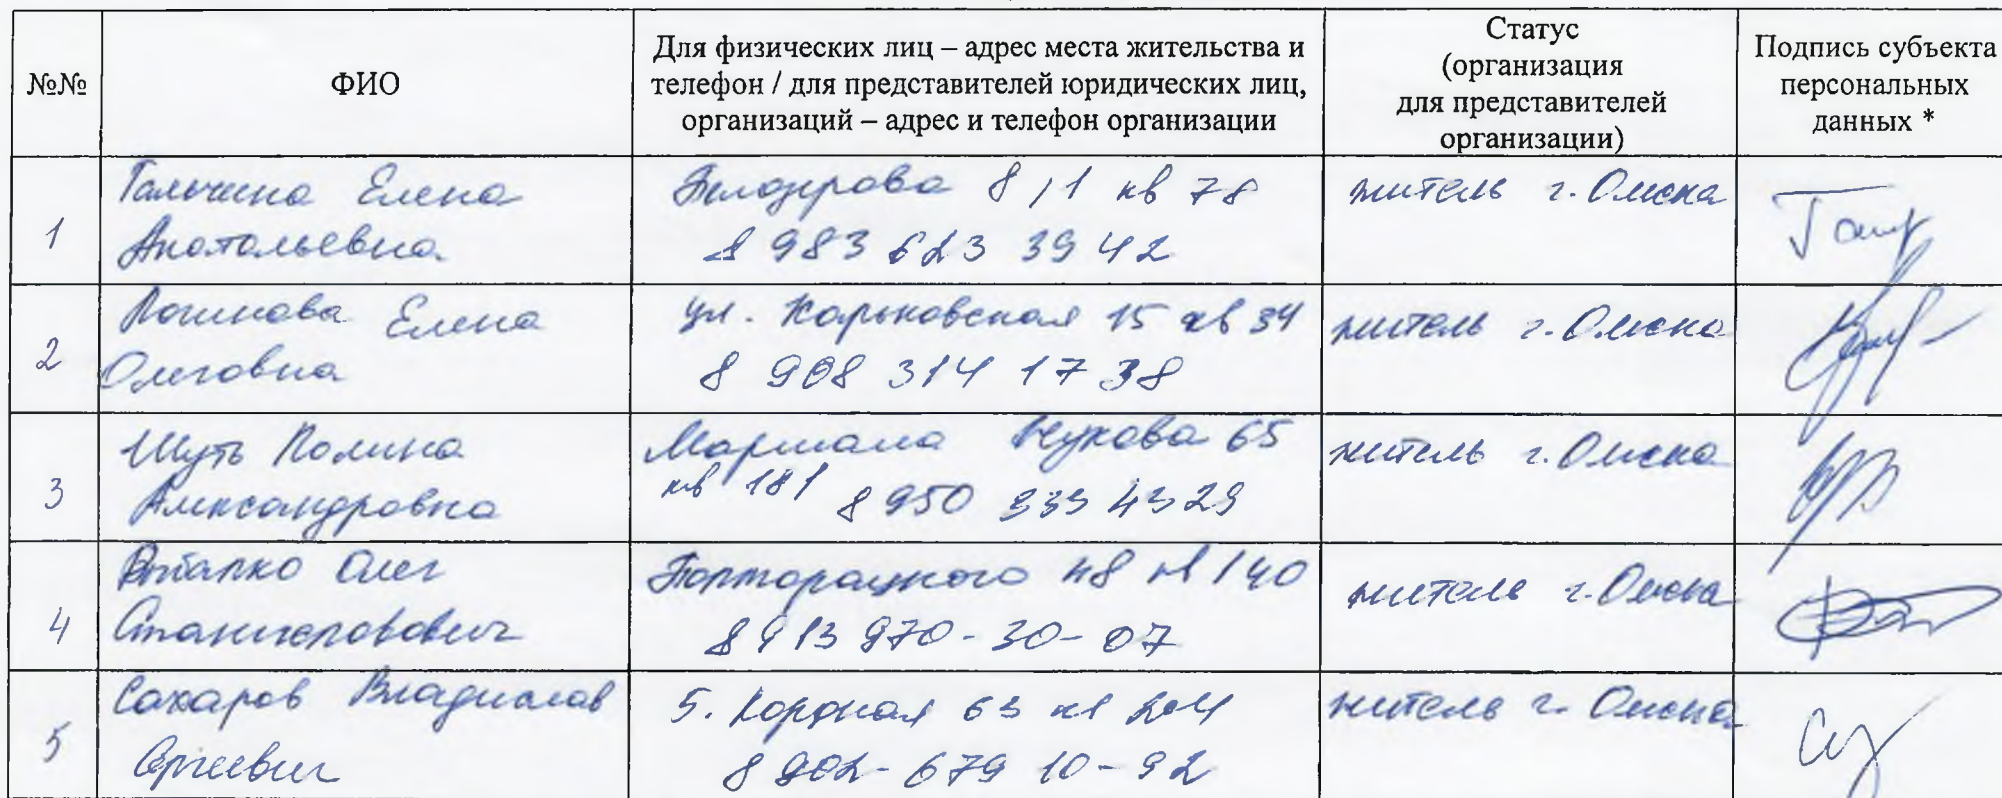 №№
ФИО
Для физических лиц – адрес места жительства и
телефон / для представителей юридических лиц,
организаций – адрес и телефон организации
Статус
(организация
для представителей
организации)
Подпись субъекта
персональных
данных *
1
Елена
Анатольевна
8/1 кв 78
8 983 623 39 42
житель г. Омска
2
Логинова Елена
Олеговна
ул. Харьковская 15 кв 34
8 908 314 17 38
житель г. Омска
3
Шуть Полина
Александровна
Маршала Жукова 65
кв 181 8 950 43 29
житель г. Омска
4
Олег
Станиславович
48 кв 140
8 913 970-30-07
житель г. Омска
5
Сахаров Владислав
Сергеевич
5. Кордная 63 кв 204
8 902-679 10-92
житель г. Омска